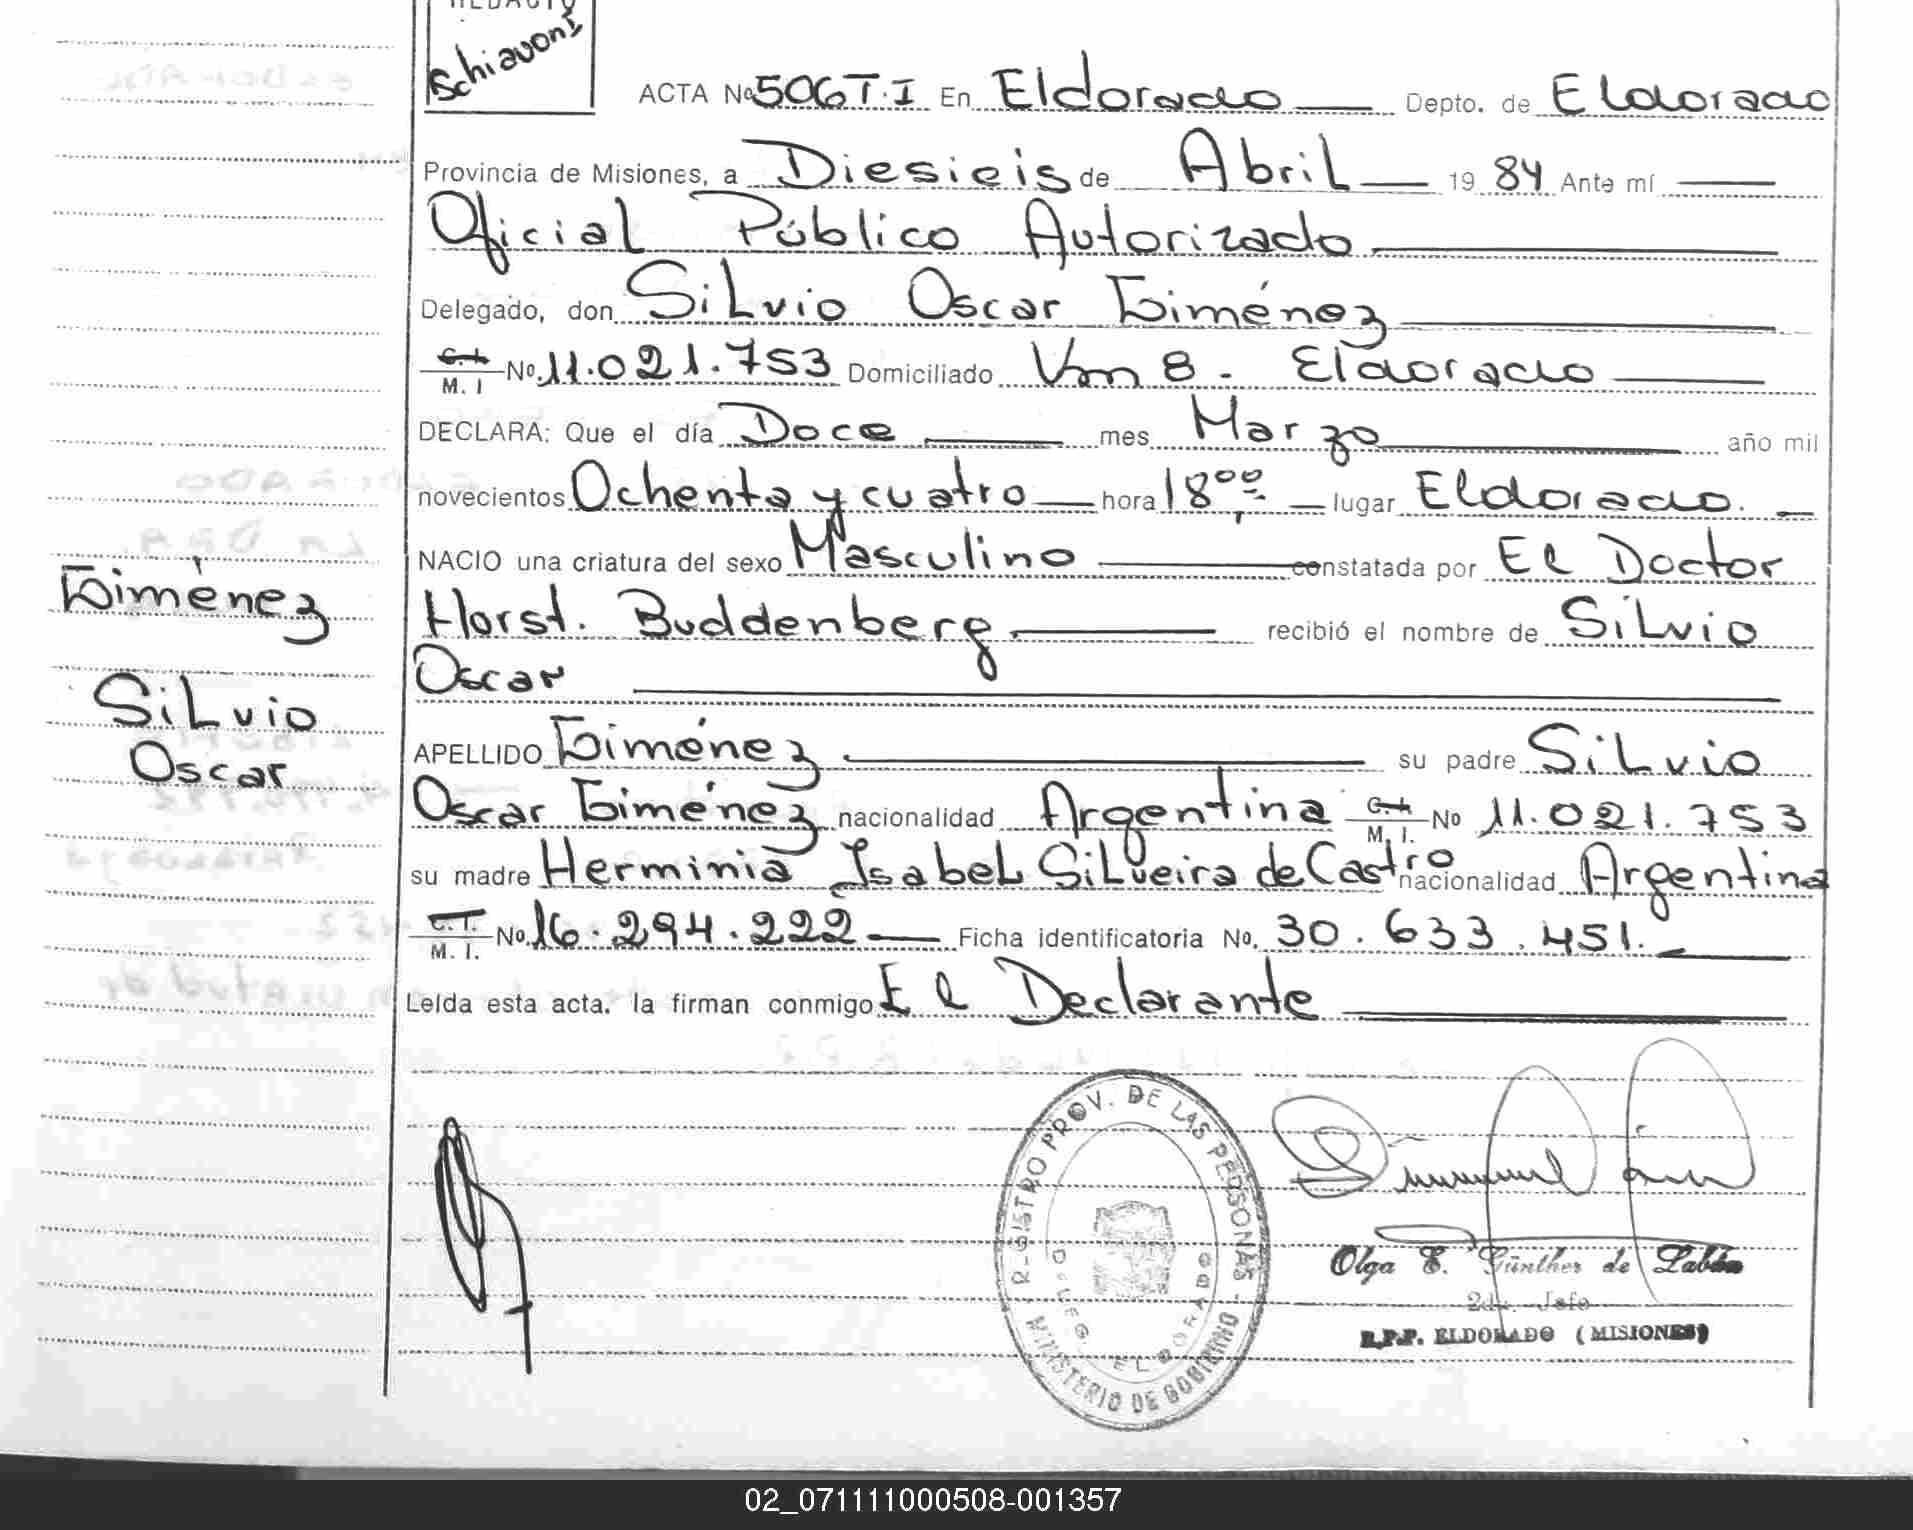 REDACTÓ
Schiavoni
ACTA Nº 506 T.I En Eldorado Depto. de Eldorado
Provincia de Misiones, a Diesieis de Abril 19 84 Ante mí
Oficial Público Autorizado
Delegado, don Silvio Oscar Giménez
C.I. M. I Nº 11.021.753 Domiciliado Km 8 - Eldorado
DECLARA: Que el día Doce mes Marzo año mil
novecientos Ochenta y cuatro hora 18 ºº lugar Eldorado.
NACIO una criatura del sexo Masculino constatada por El Doctor
Horst. Buddenberg recibió el nombre de Silvio
Oscar
APELLIDO Giménez su padre Silvio
Oscar Giménez nacionalidad Argentina C.I. M. I. Nº 11.021.753
su madre Herminia Isabel Silveira de Castro nacionalidad Argentina
C.I. M. I. Nº 16.294.222 Ficha identificatoria Nº. 30.633.451.
Leída esta acta. la firman conmigo El Declarante
Giménez
Silvio
Oscar
REGISTRO PROV. DE LAS PERSONAS - MINISTERIO DE GOBIERNO
DELEG. ELDORADO
Olga E. Günther de Labán
2do. Jefe
R.P.P. ELDORADO (MISIONES)
02_071111000508-001357